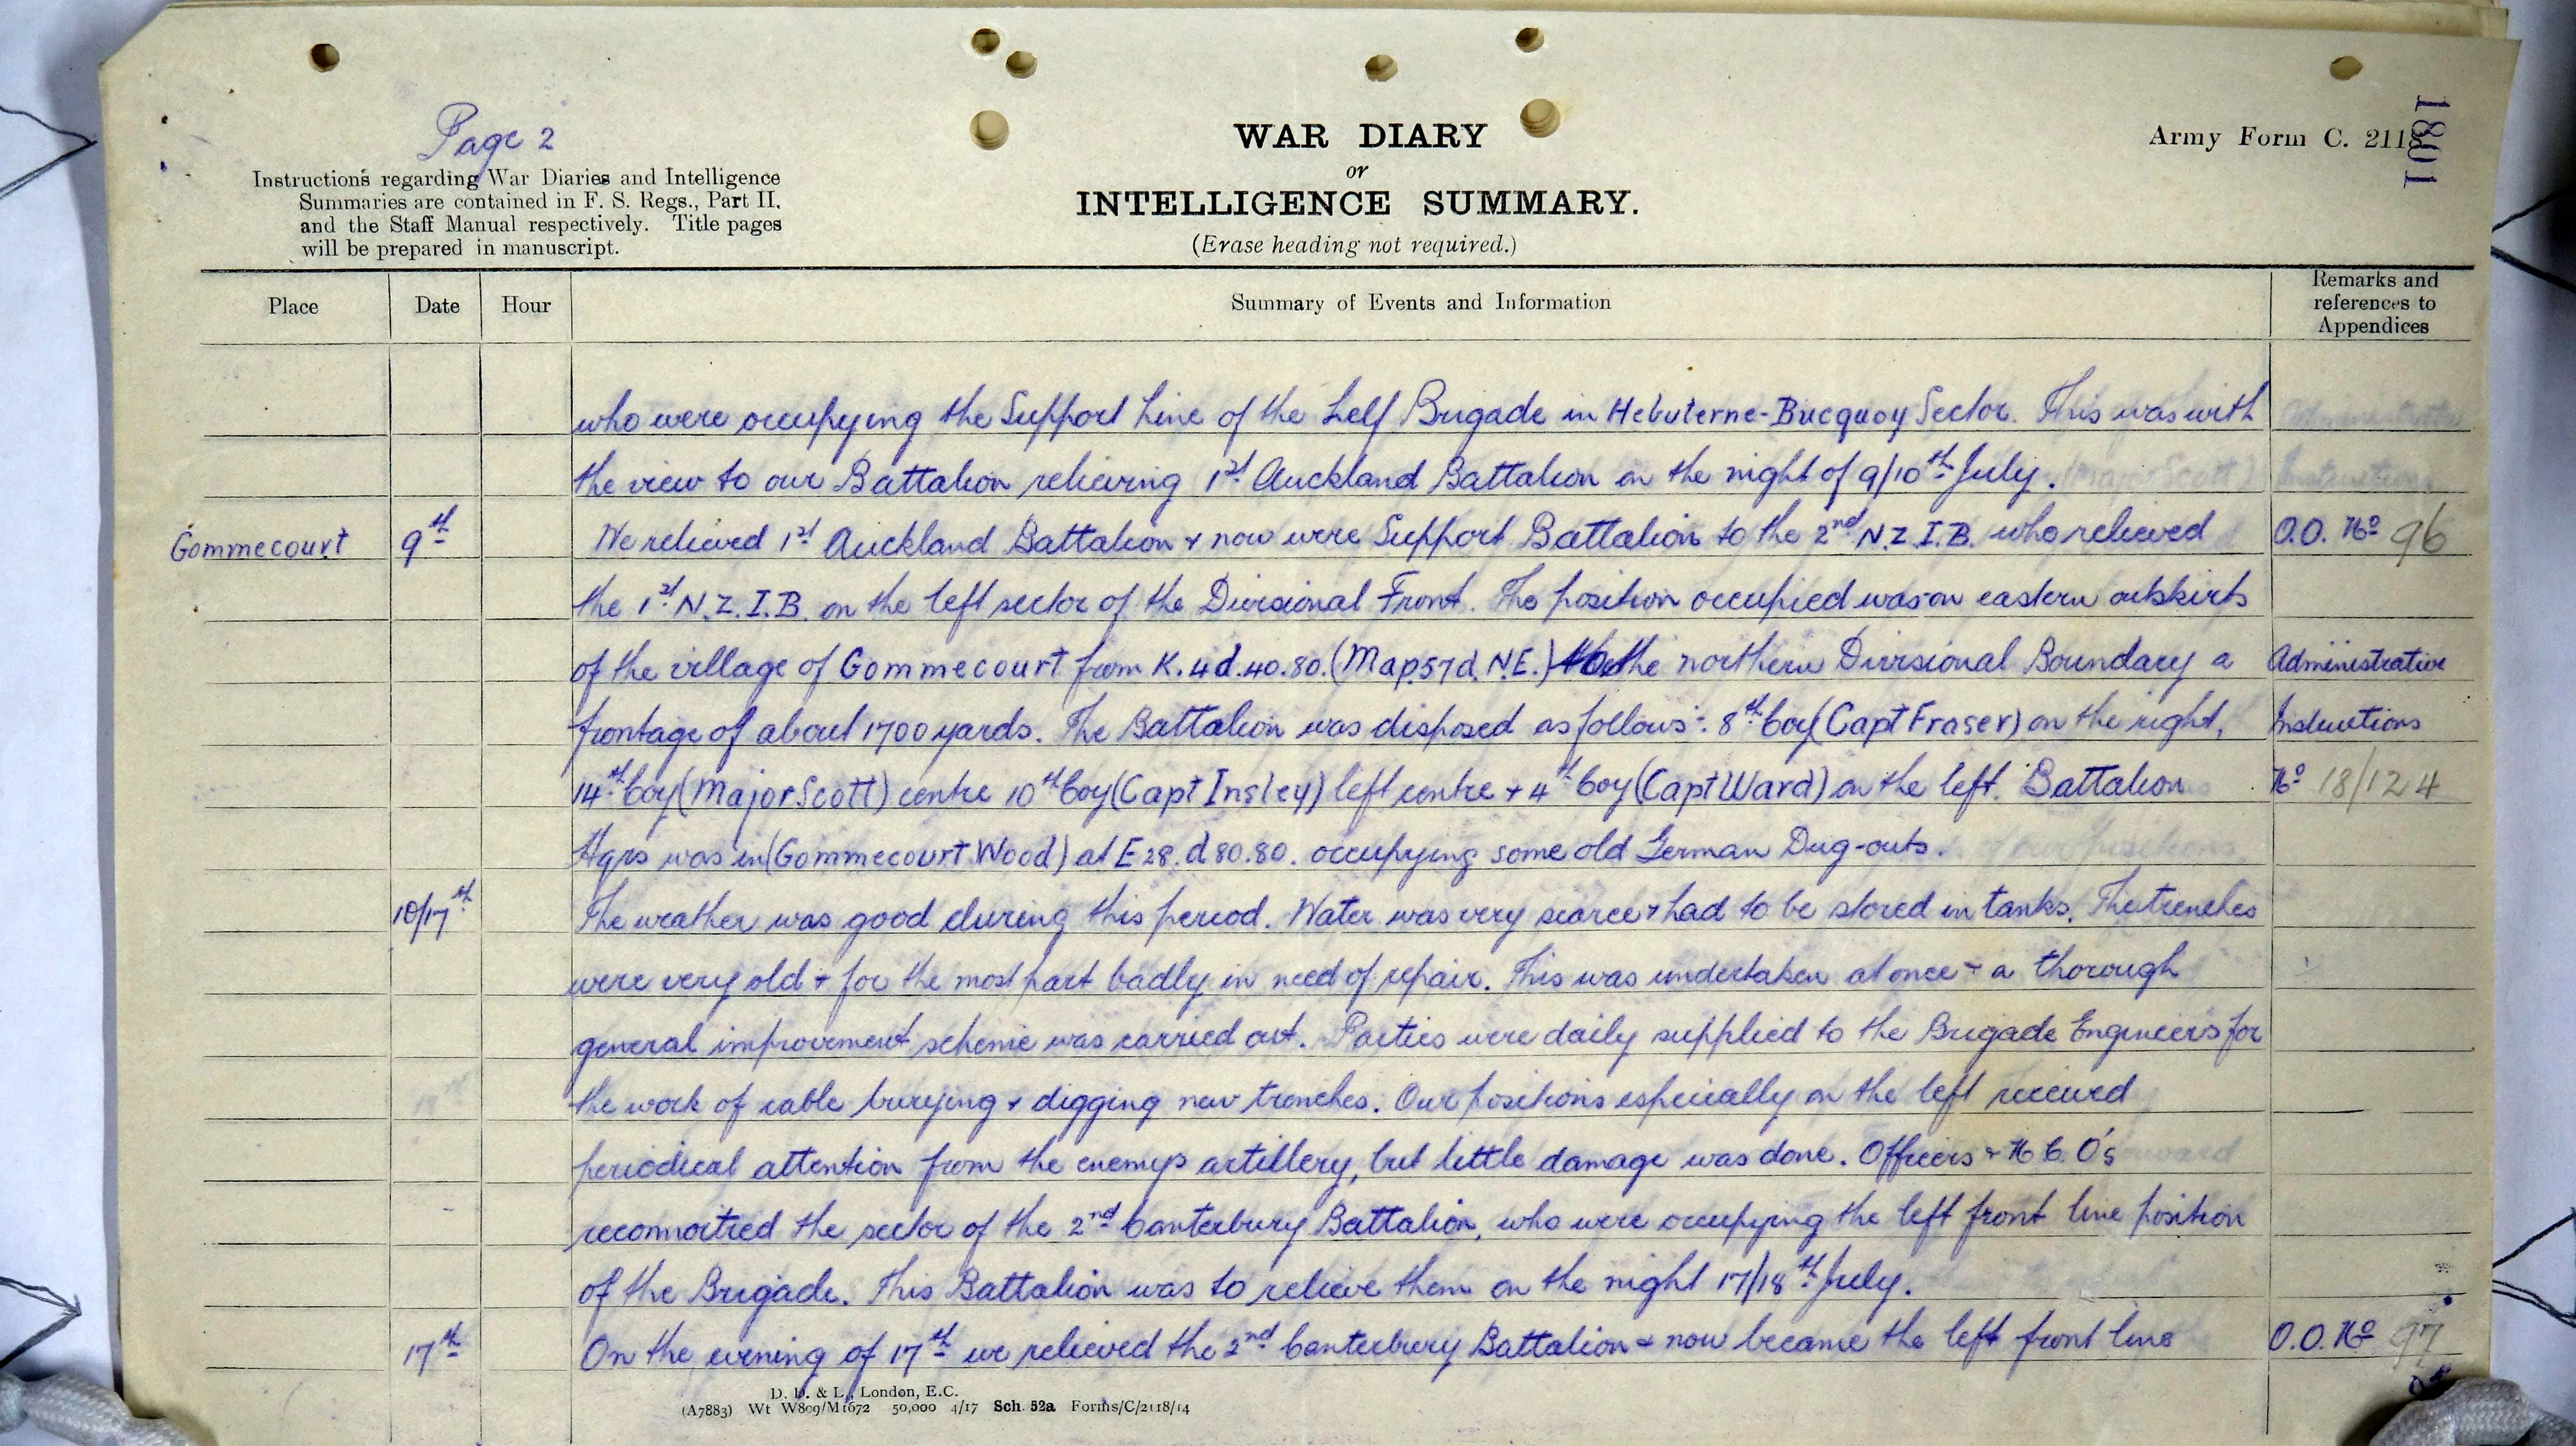 Page 2
Instructions regarding War Diaries and Intelligence
Summaries are contained in F. S. Regs., Part II.
and the Staff Manual respectively. Title pages
will be prepared in manuscript.
WAR DIARY
or
INTELLIGENCE SUMMARY.
(Erase heading not required.)
Army Form C. 2118
1801
Place Date Hour Summary of Events and Information Remarks and references to Appendices
who were occupying the Support Line of the Left Brigade in Hebuterne-Bucquoy Sector. This was with
the view to our Battalion relieving 1st Auckland Battalion on the night of 9/10th July.
Gommecourt 9th We relieved 1st Auckland Battalion & now were Support Battalion to the 2nd N.Z.I.B. who relieved O.O. No 96
the 1st N.Z.I.B. on the left sector of the Divisional Front. The position occupied was on eastern outskirts
of the village of Gommecourt from K.4d.40.80. (Map 57d. N.E.) to the northern Divisional Boundary a Administrative
frontage of about 1700 yards. The Battalion was disposed as follows:- 8th Coy (Capt Fraser) on the right, Instructions
14th Coy (Major Scott) centre 10th Coy (Capt Insley) left centre & 4th Coy (Capt Ward) on the left. Battalion No 18/124
Hqrs was in (Gommecourt Wood) at E28.d80.80. occupying some old German Dug-outs.
10/17th The weather was good during this period. Water was very scarce & had to be stored in tanks. The trenches
were very old & for the most part badly in need of repair. This was undertaken at once & a thorough
general improvement scheme was carried out. Parties were daily supplied to the Brigade Engineers for
the work of cable burying & digging new trenches. Our positions especially on the left received
periodical attention from the enemys artillery, but little damage was done. Officers & N C O's
reconnoitred the sector of the 2nd Canterbury Battalion, who were occupying the left front line position
of the Brigade. This Battalion was to relieve them on the night 17/18th July.
17th On the evening of 17th we relieved the 2nd Canterbury Battalion & now became the left front line O.O. No 97
D. D. & L., London, E.C.
(A7883) Wt W809/M1672 50,000 4/17 Sch. 52a Forms/C/2118/14